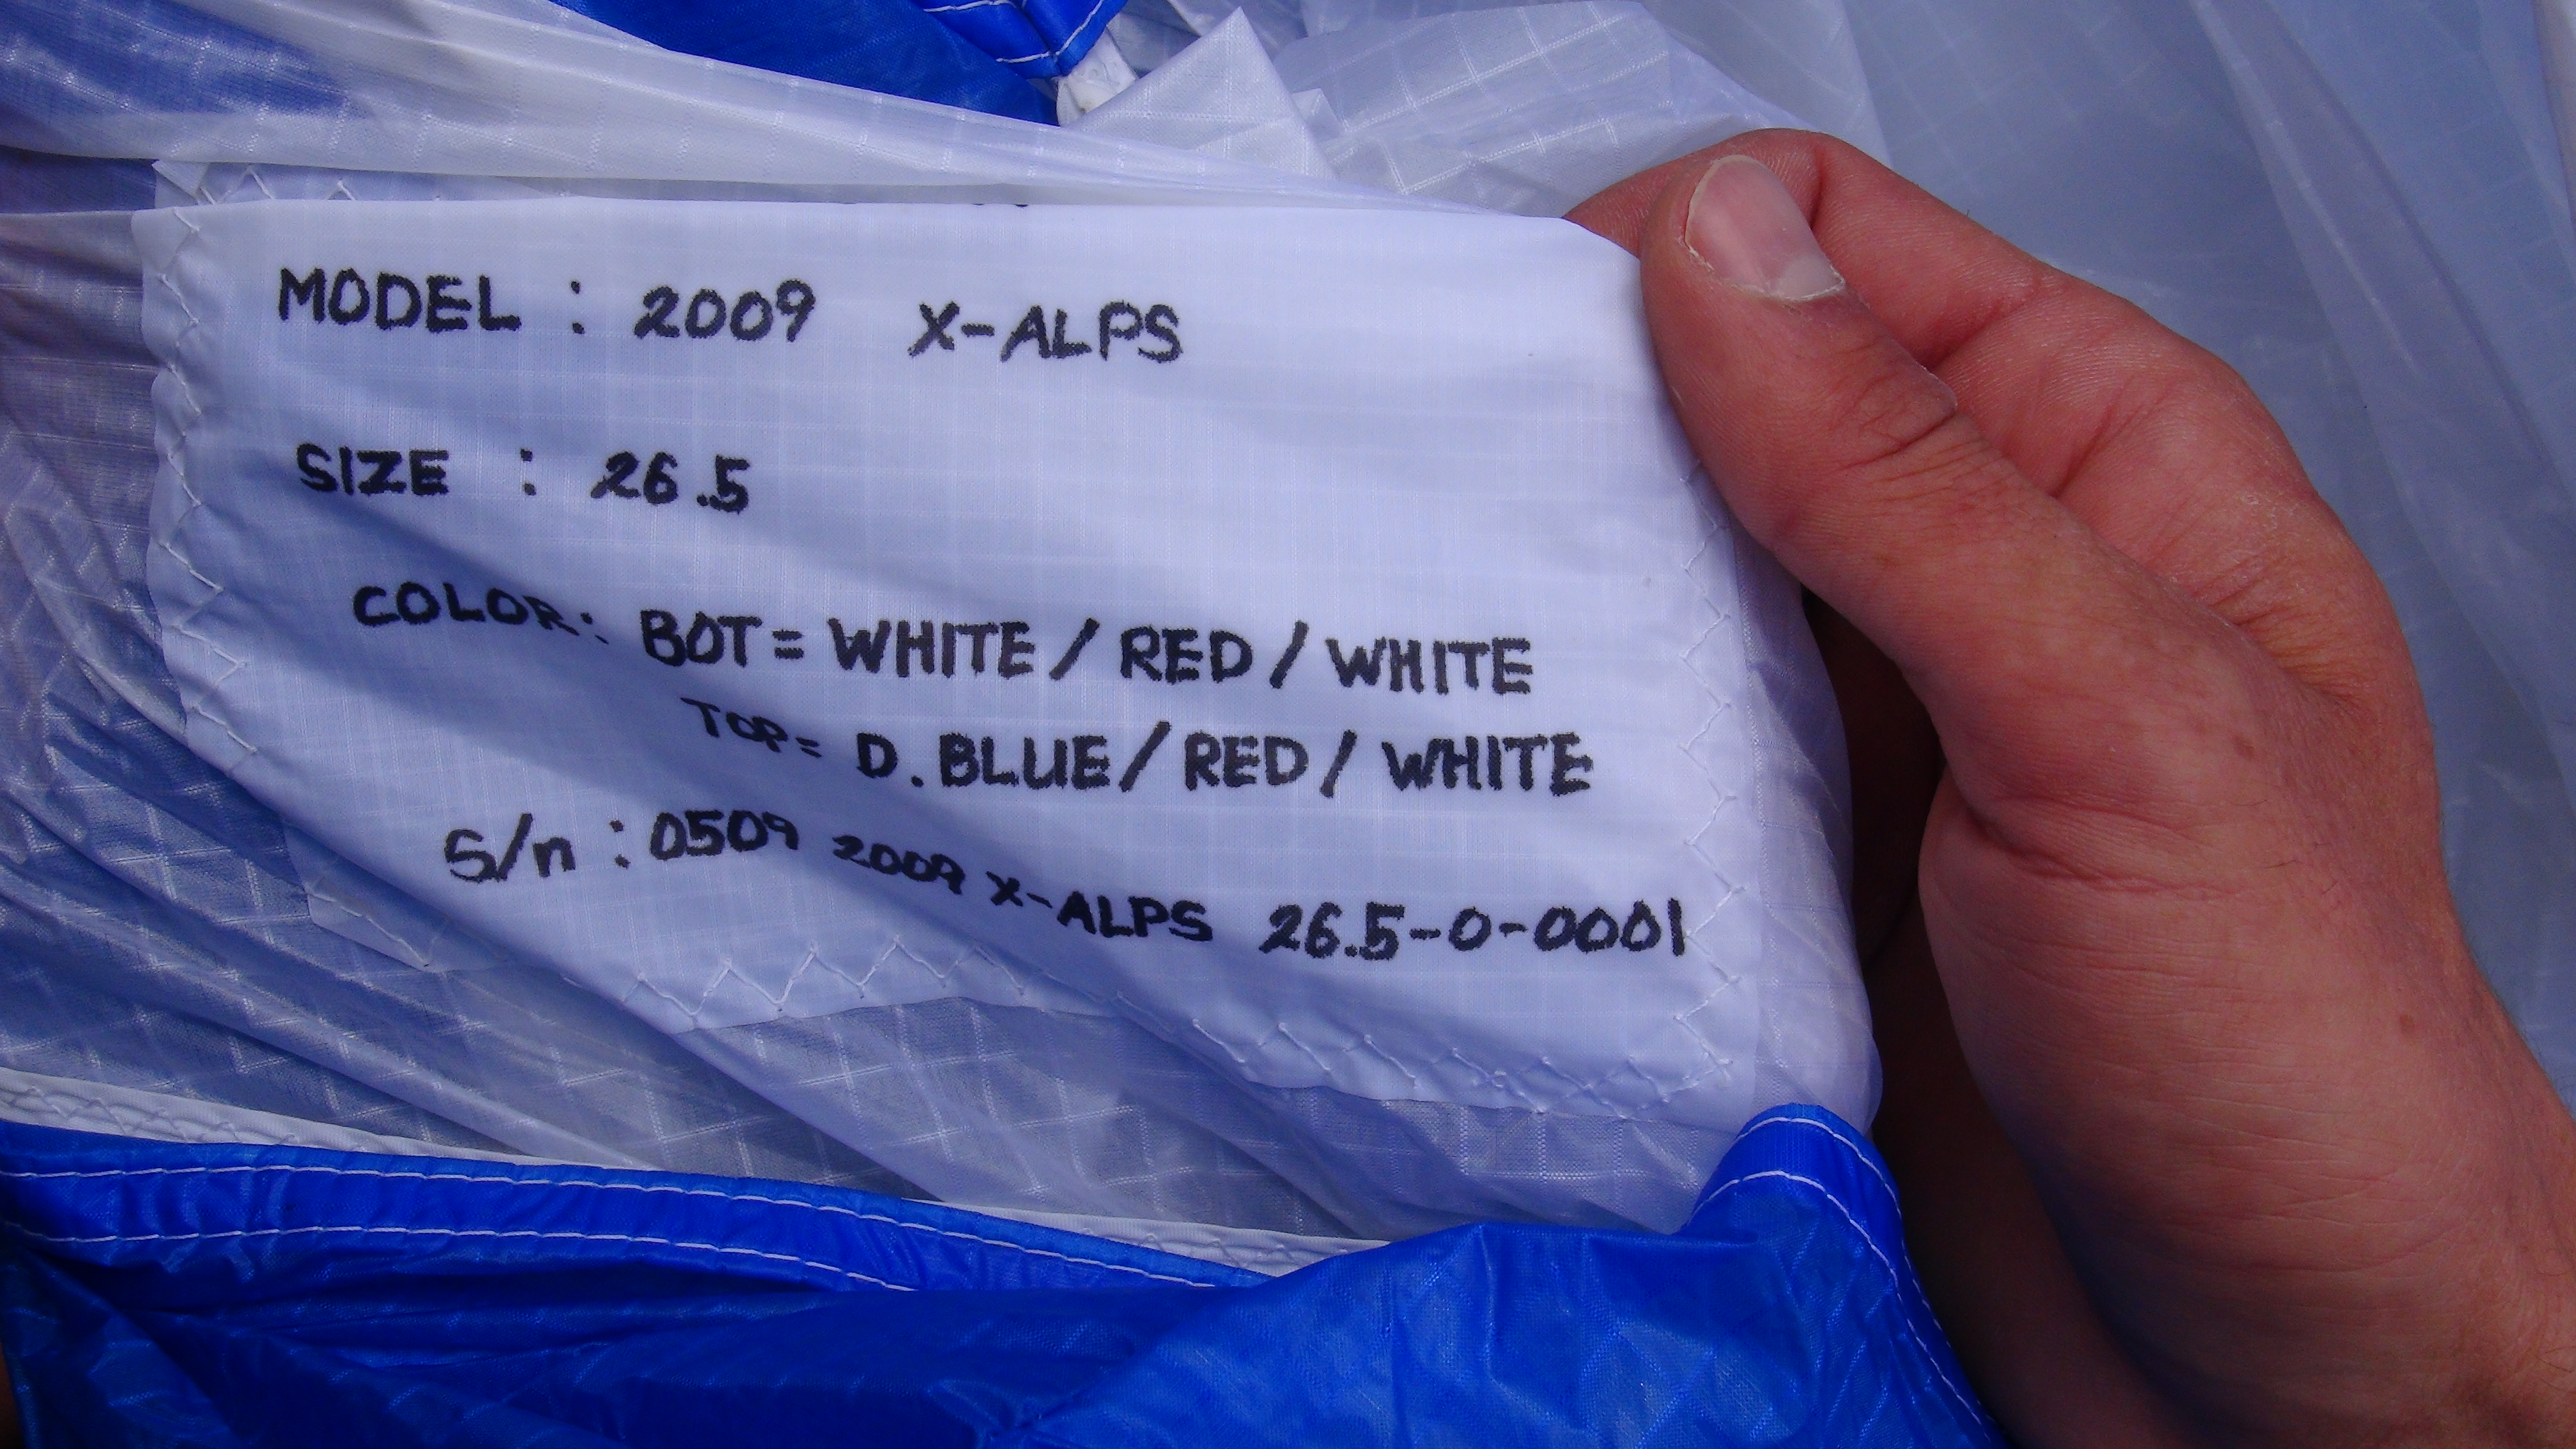 MODEL : 2009 X-ALPS
SIZE : 26.5
COLOR: BOT = WHITE / RED / WHITE
TOP = D. BLUE / RED / WHITE
S/n : 0509 2009 X-ALPS 26.5-0-0001